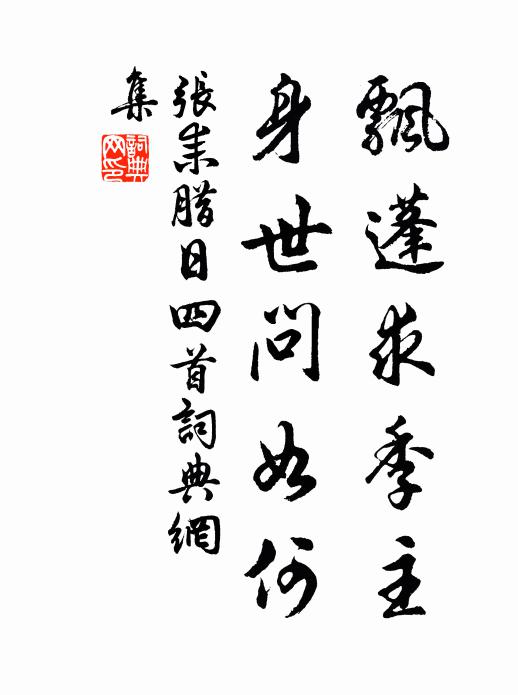 飄蓬求季主
身世問如何
張耒腊日四首詞典網
集
詞典
网印